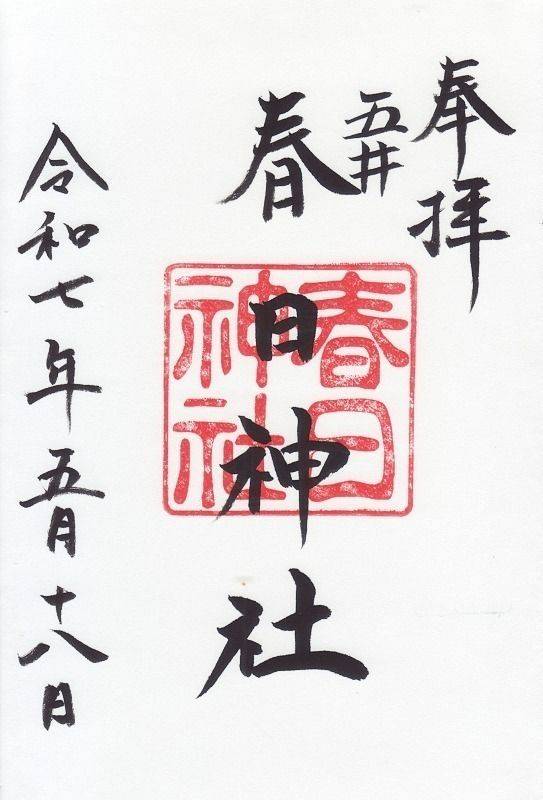 奉拝
五井
春日神社
春日
神社
令和七年五月十八日